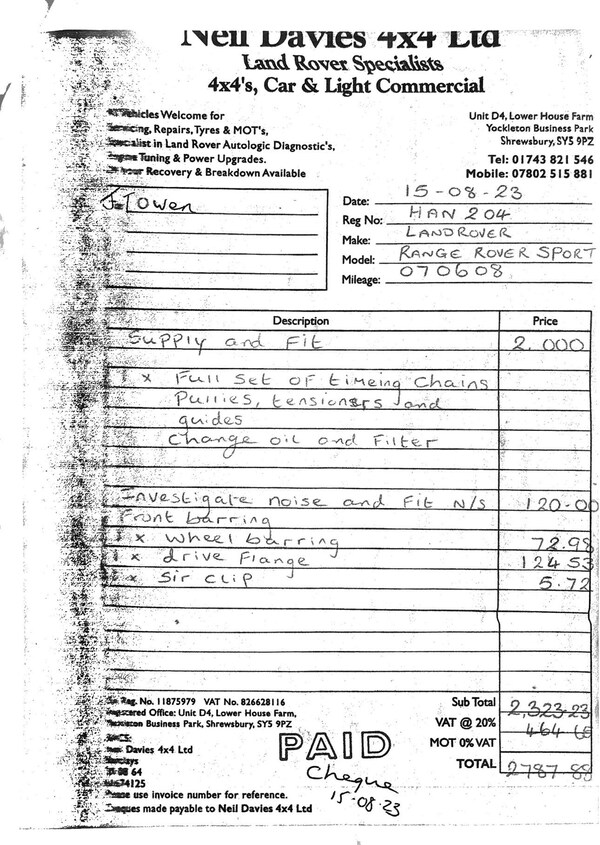 Neil Davies 4x4 Ltd
Land Rover Specialists
4x4's, Car & Light Commercial
Vehicles Welcome for
Servicing, Repairs, Tyres & MOT's,
Specialist in Land Rover Autologic Diagnostic's,
Engine Tuning & Power Upgrades.
Hour Recovery & Breakdown Available
Unit D4, Lower House Farm
Yockleton Business Park
Shrewsbury, SY5 9PZ
Tel: 01743 821 546
Mobile: 07802 515 881
J Towen
Date: 15-08-23
Reg No: HAN 204
Make: LANDROVER
Model: RANGE ROVER SPORT
Mileage: 070608
Description Price
Supply and Fit 2.000
1 x Full Set Of timeing Chains
Pullies, tensioners and
guides
Change oil and Filter
Investigate noise and Fit N/S 120-00
Front barring
1 x wheel barring 72.98
1 x drive flange 124 53
1 x Sir Clip 5.72
Reg. No. 11875979 VAT No. 826628116
Registered Office: Unit D4, Lower House Farm,
Yockleton Business Park, Shrewsbury, SY5 9PZ
Davies 4x4 Ltd
Barclays
64
74125
Please use invoice number for reference.
Cheques made payable to Neil Davies 4x4 Ltd
PAID
Cheque
15-08-23
Sub Total 2,323.23
VAT @ 20% 464
MOT 0% VAT
TOTAL 2787 88